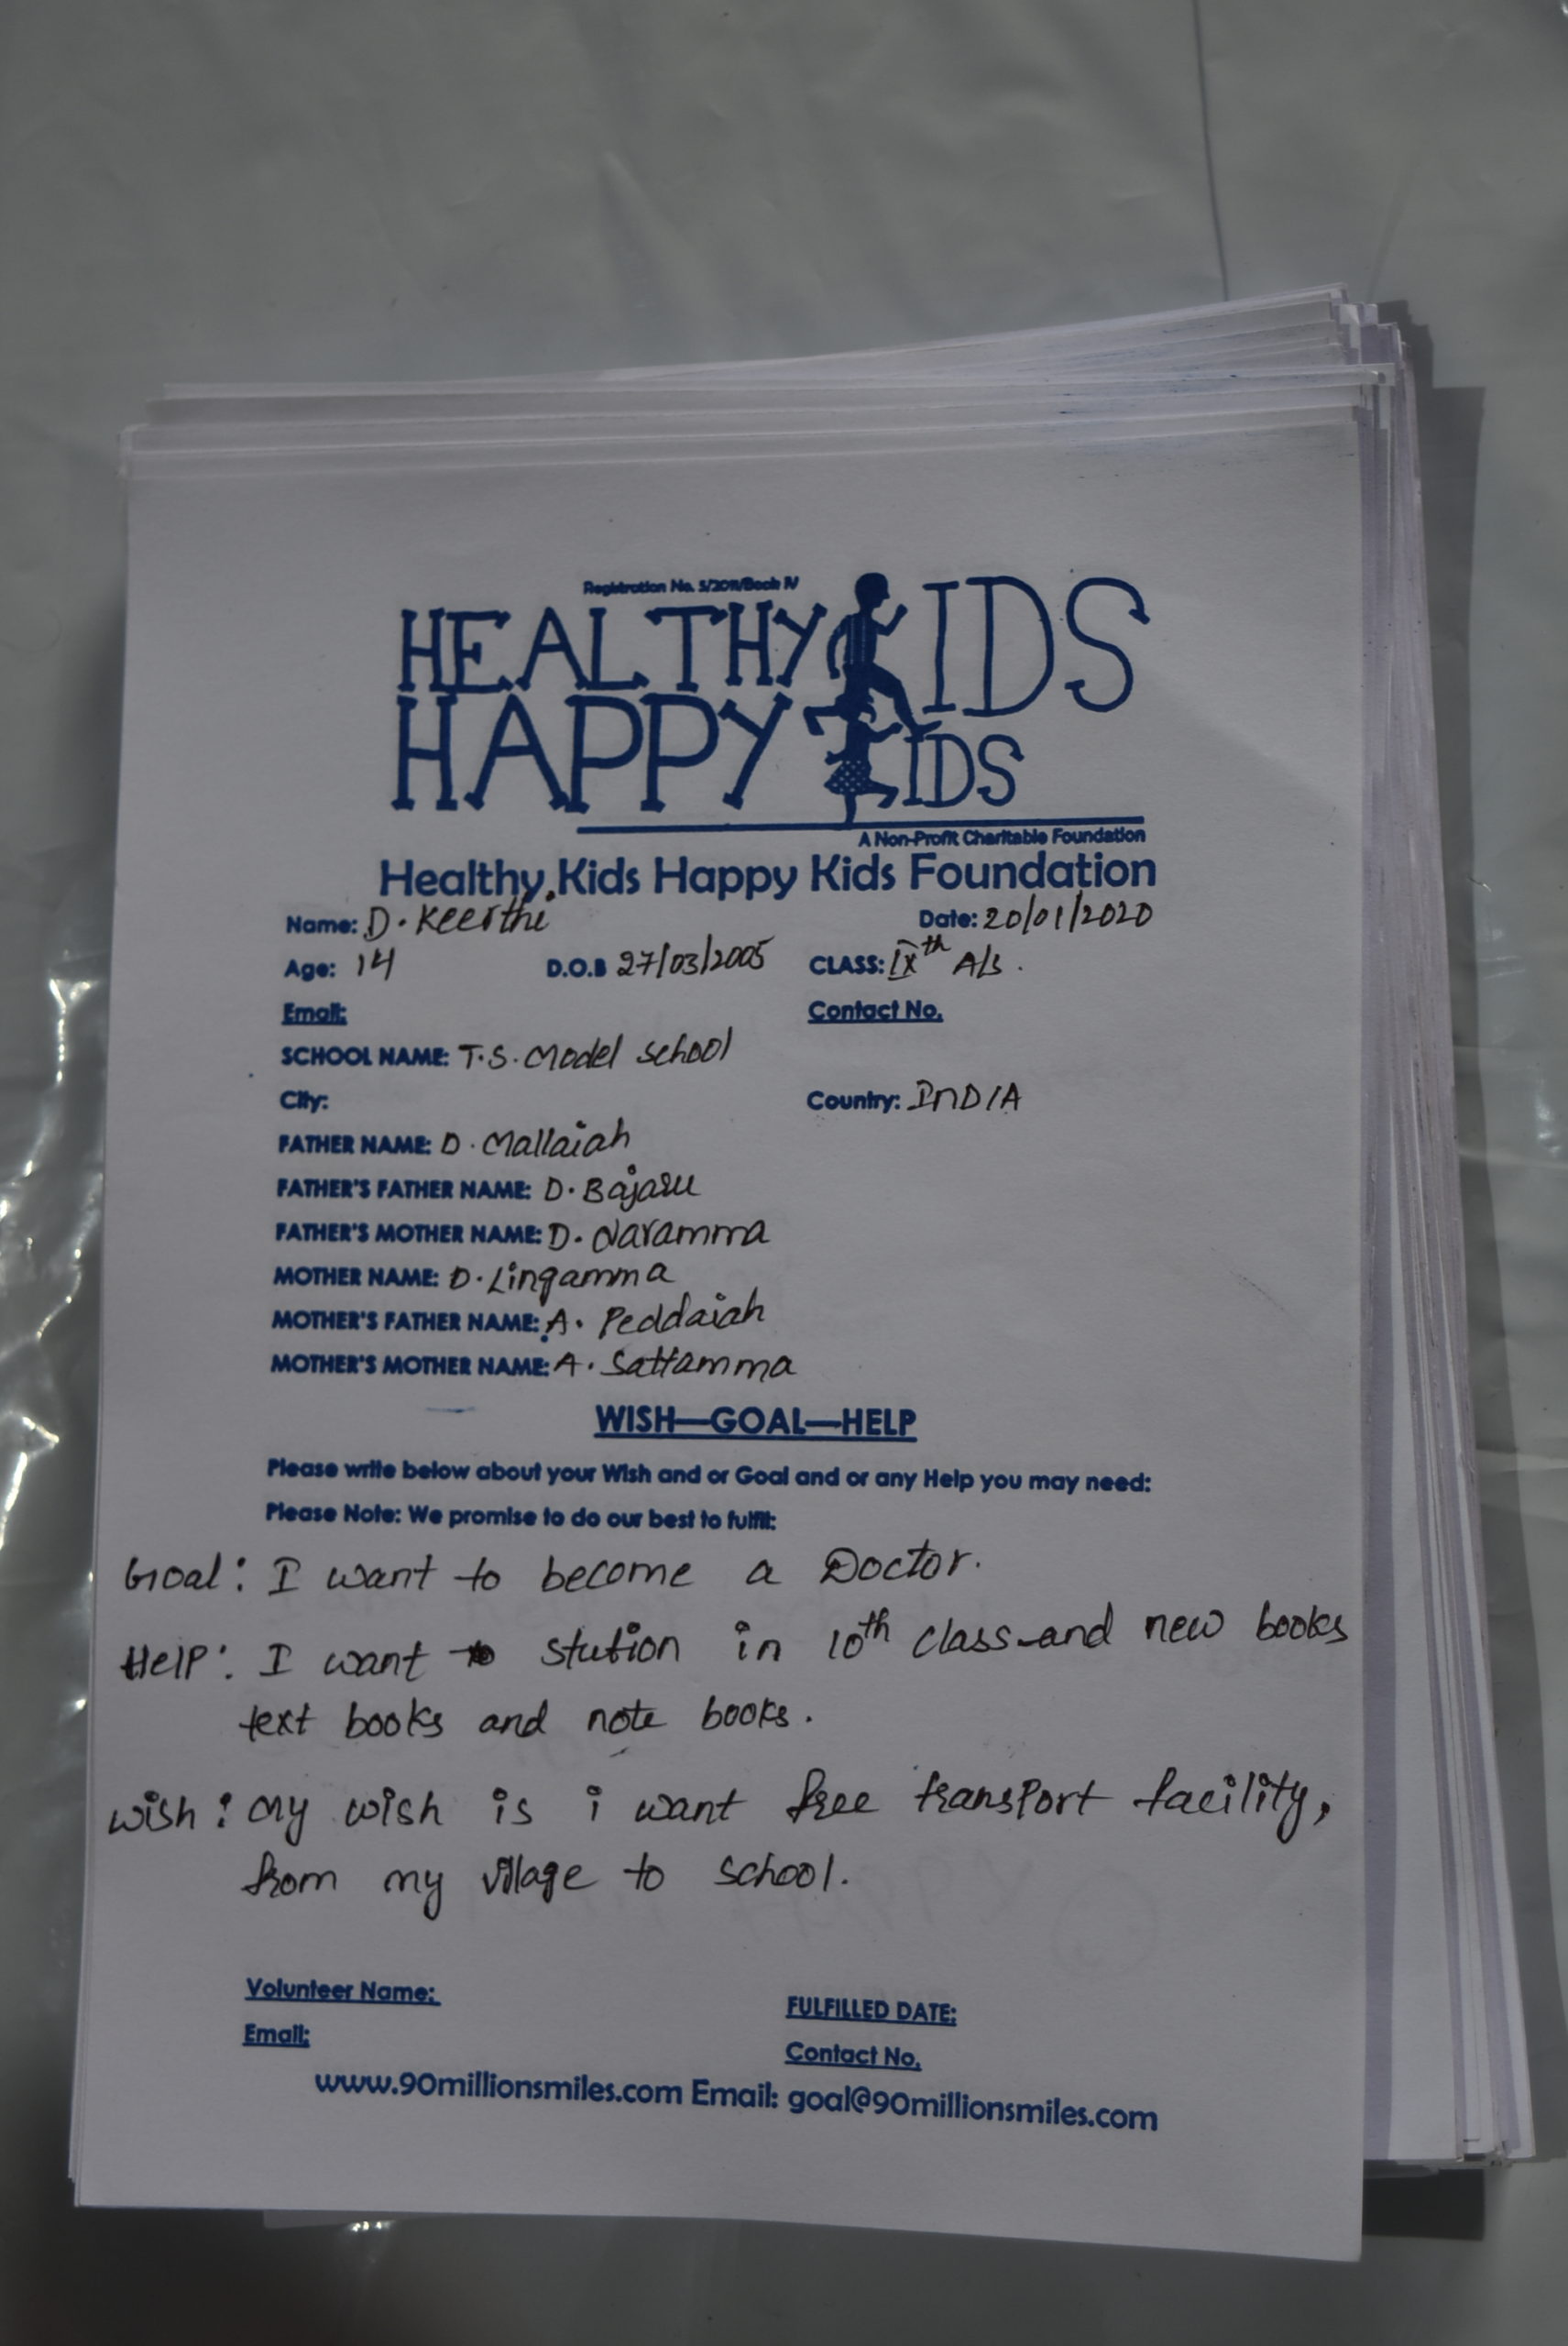 Registration No. 5/2011/Book IV
HEALTHY KIDS
HAPPY KIDS
A Non-Profit Charitable Foundation
Healthy Kids Happy Kids Foundation
Name: D. Keerthi Date: 20/01/2020
Age: 14 D.O.B 27/03/2005 CLASS: IXth A/s.
Email: Contact No.
SCHOOL NAME: T.S. Model school
City: Country: INDIA
FATHER NAME: D. Mallaiah
FATHER'S FATHER NAME: D. Bajaru
FATHER'S MOTHER NAME: D. Naramma
MOTHER NAME: D. Lingamma
MOTHER'S FATHER NAME: A. Peddaiah
MOTHER'S MOTHER NAME: A. Sattamma
WISH—GOAL—HELP
Please write below about your Wish and or Goal and or any Help you may need:
Please Note: We promise to do our best to fulfil:
Goal: I want to become a Doctor.
Help: I want stution in 10th class and new books
text books and note books.
wish: my wish is i want free transport facility,
from my village to school.
Volunteer Name: FULFILLED DATE:
Email: Contact No.
www.90millionsmiles.com Email: goal@90millionsmiles.com